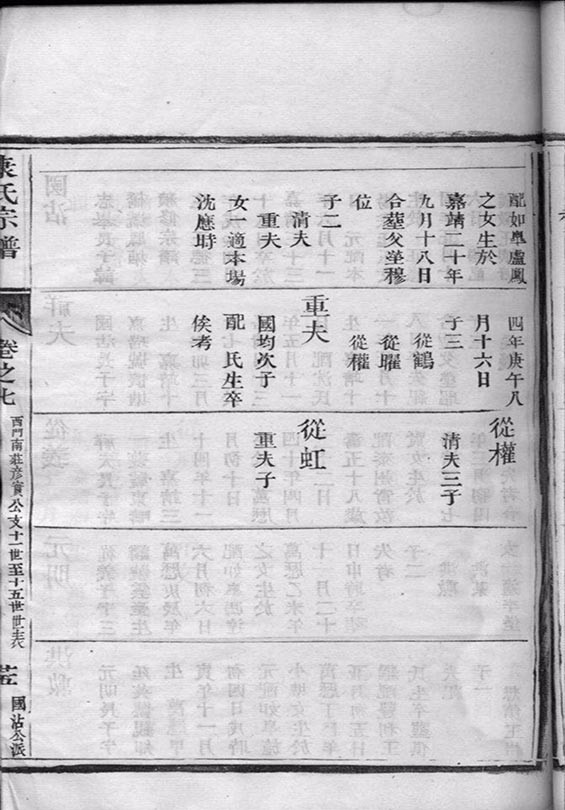 配如臯盧鳳
之女生於
嘉靖二十年
九月十八日
合塟父塋穆
位
子二
清夫
重夫
女一適本場
沈應時
四年庚午八
月十六日
子三
從鶴
從曜
從權
重夫
國均次子
配 氏生卒
俟考
從權
清夫三子
從虹
重夫子
氏宗譜
卷之七
西門南莊彦實公支十一世至十五世世表
國沾公派